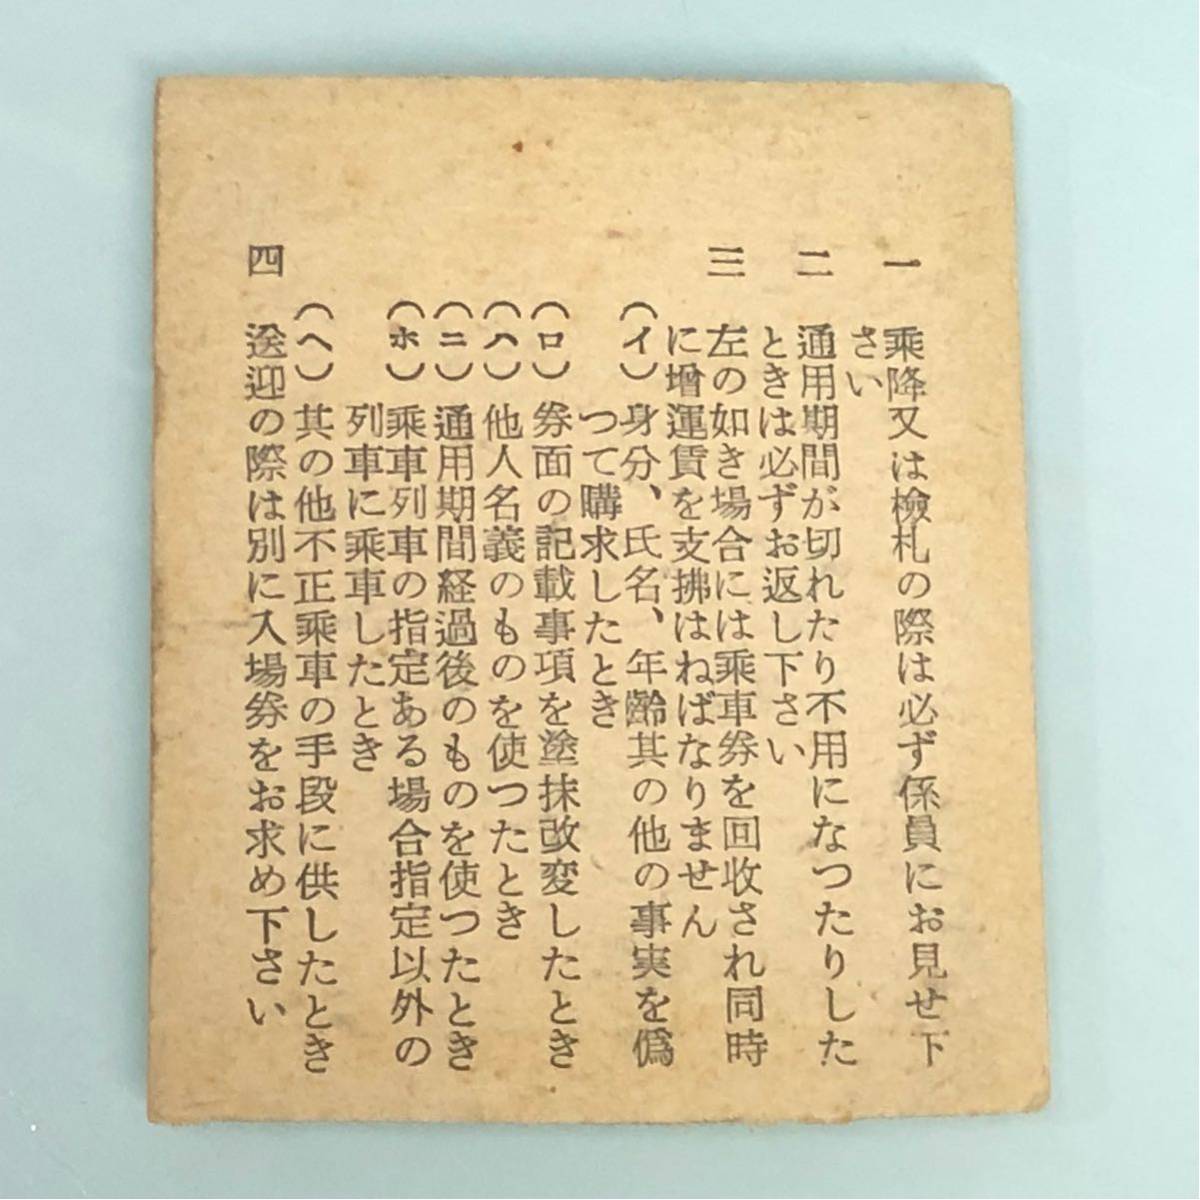 一 乗降又は検札の際は必ず係員にお見せ下
さい
二 通用期間が切れたり不用になつたりした
ときは必ずお返し下さい
三 左の如き場合には乗車券を回収され同時
に増運賃を支拂はねばなりません
(イ) 身分、氏名、年齢其の他の事実を偽
つて購求したとき
(ロ) 券面の記載事項を塗抹改変したとき
(ハ) 他人名義のものを使つたとき
(ニ) 通用期間経過後のものを使つたとき
(ホ) 乗車列車の指定ある場合指定以外の
列車に乗車したとき
(ヘ) 其の他不正乗車の手段に供したとき
四 送迎の際は別に入場券をお求め下さい